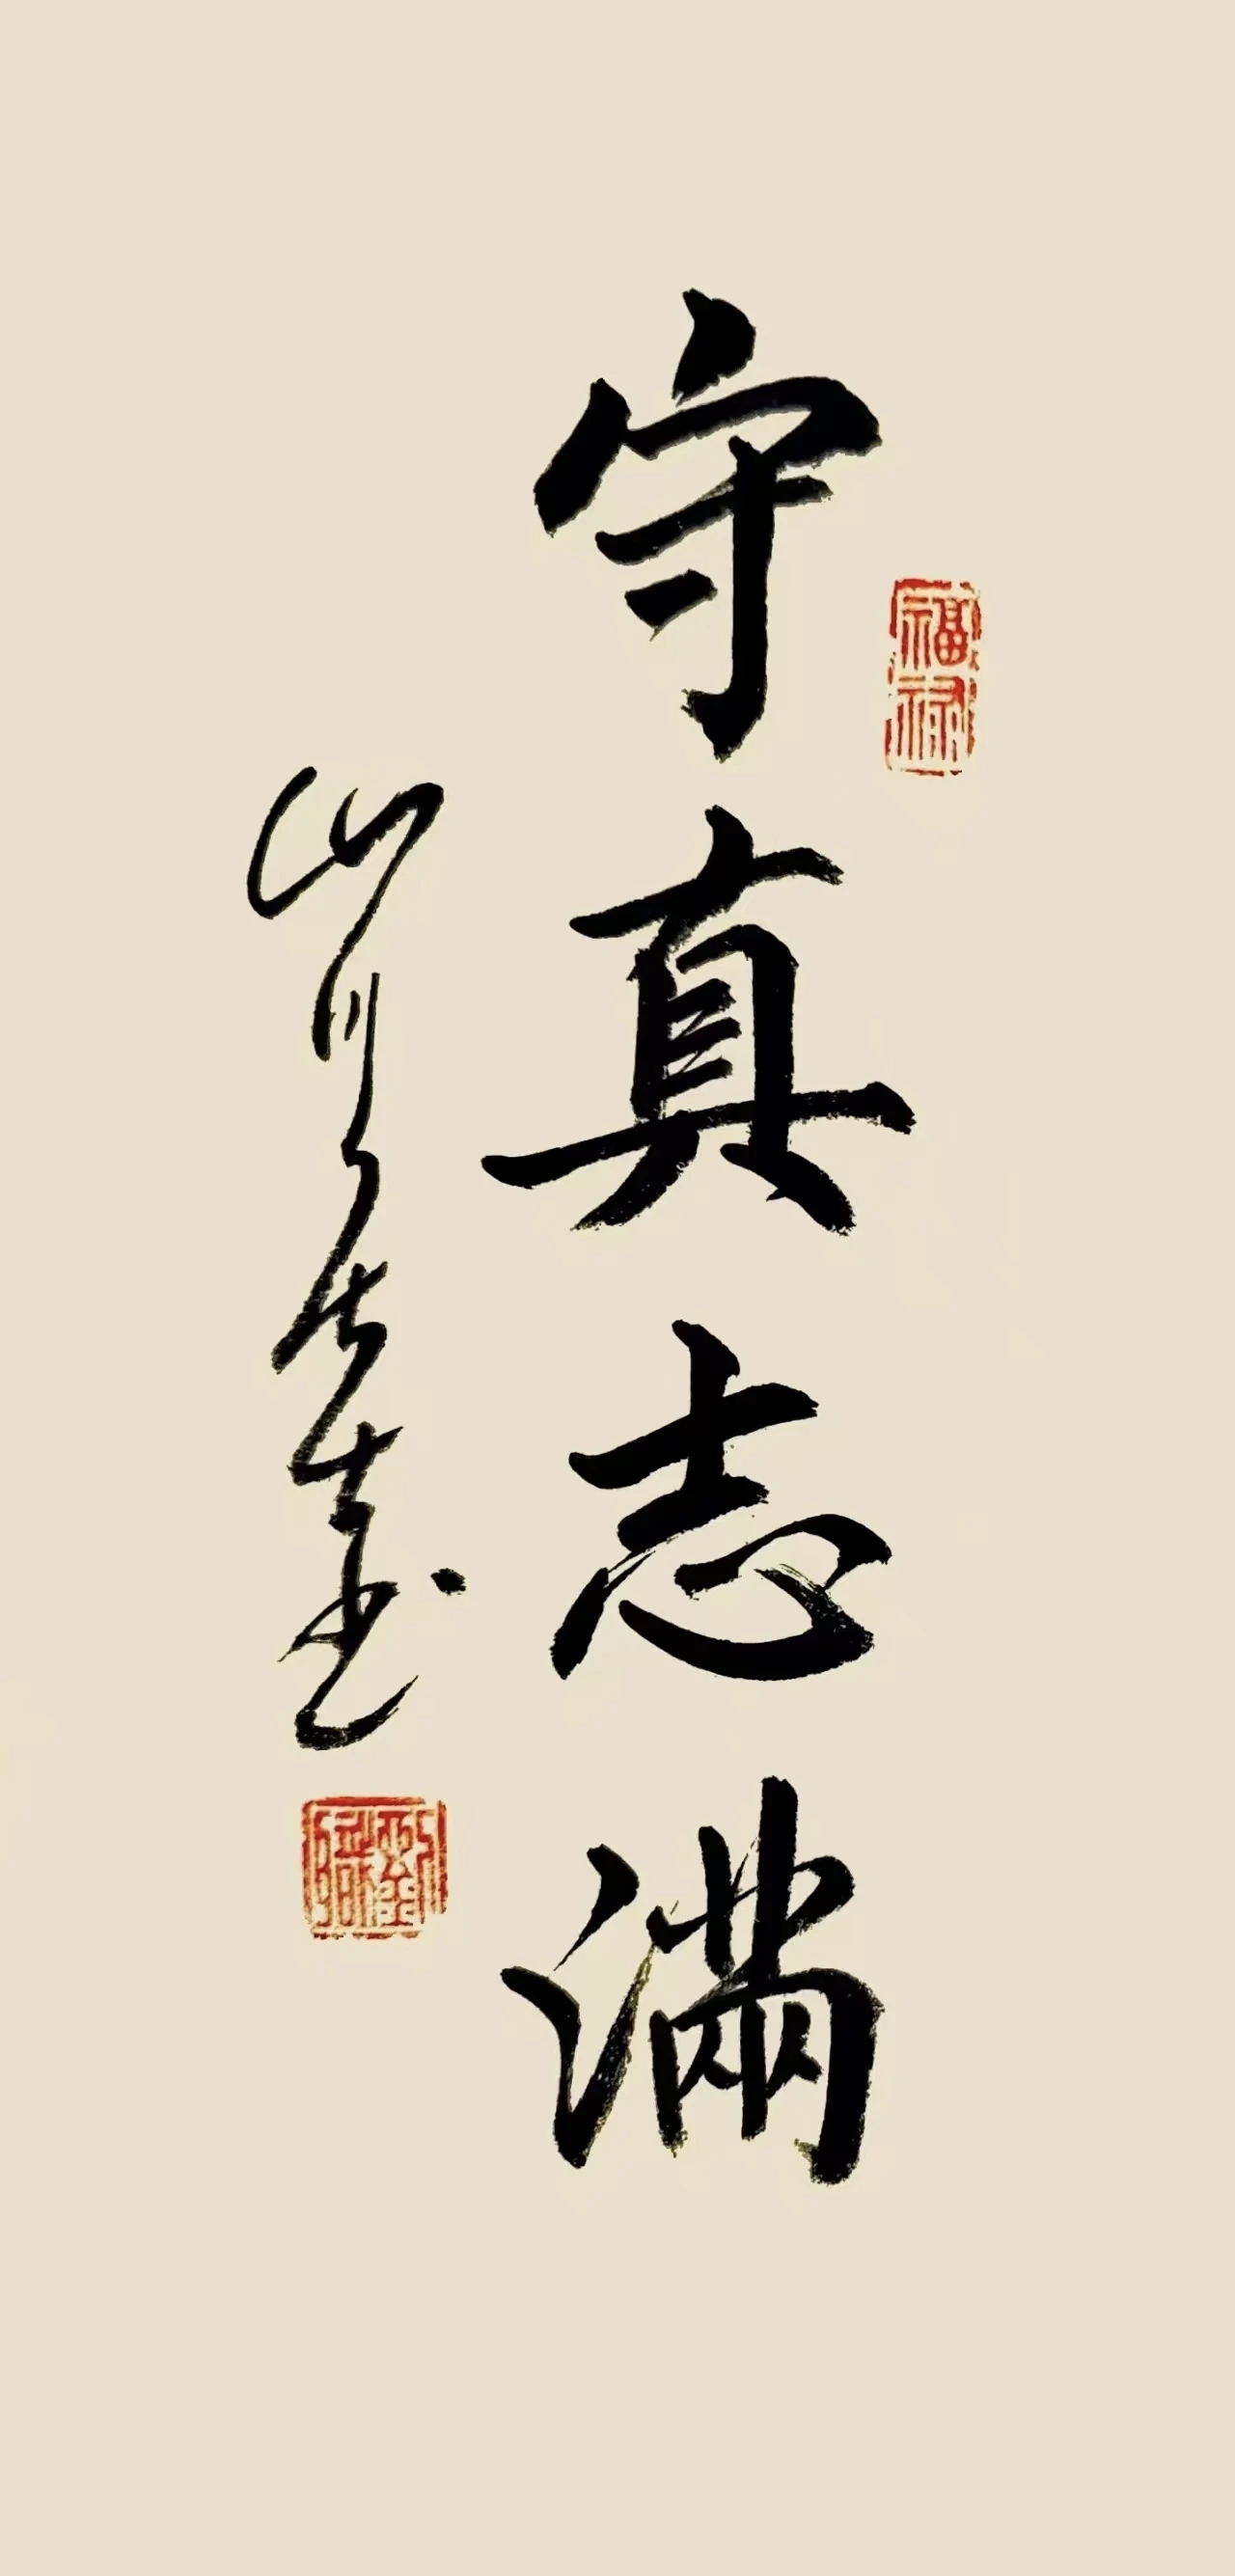 守真志满
福禄
山川先生书